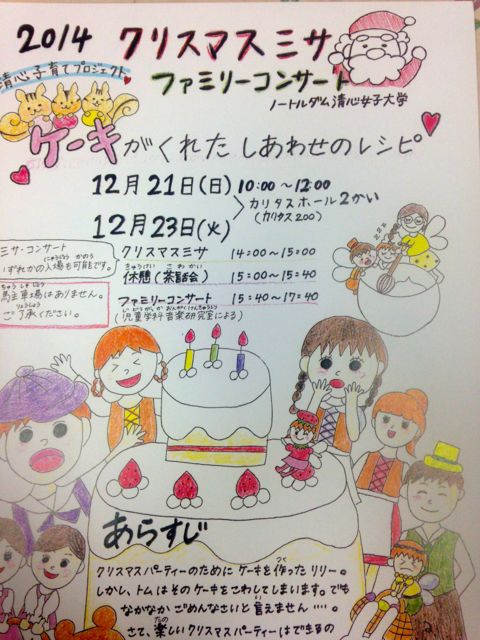 2014 クリスマスミサ
清心子育てプロジェクト
ファミリーコンサート
ノートルダム清心女子大学
ケーキがくれたしあわせのレシピ
12月21日(日) 10:00～12:00
カリタスホール2かい
(カリタス200)
12月23日(火)
ミサ・コンサート
にゅうじょう かのう
いずれかの入場も可能です。
クリスマスミサ 14:00～15:00
きゅうけい さわかい
休憩(茶話会) 15:00～15:40
ちゅうしゃじょう
駐車場はありません。
りょうしょう
ご了承ください。
ファミリーコンサート 15:40～17:40
じどうがっか おんがくけんきゅうしつ
(児童学科音楽研究室による)
あらすじ
つく
クリスマスパーティーのためにケーキを作ったリリー。
しかし、トムはそのケーキをこわしてしまいます。でも
い
なかなかごめんなさいと言えません‥‥。
たの
さて、楽しいクリスマスパーティーはできるの